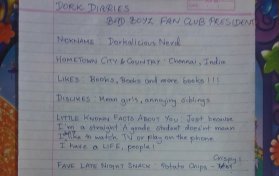 DORK DIARIES
BAD BOYZ FAN CLUB PRESIDENT
NICKNAME: Dorkalicious Nerd
HOMETOWN CITY & COUNTRY: Chennai, India
LIKES: Books, Books and more books!!!
DISLIKES: Mean girls, annoying siblings
LITTLE KNOWN FACTS ABOUT YOU: Just because
I'm a straight A grade student does'nt mean
I like to watch TV or play on the phone
I have a LIFE, people!
Crispy!
FAVE LATE NIGHT SNACK: Potato Chips -